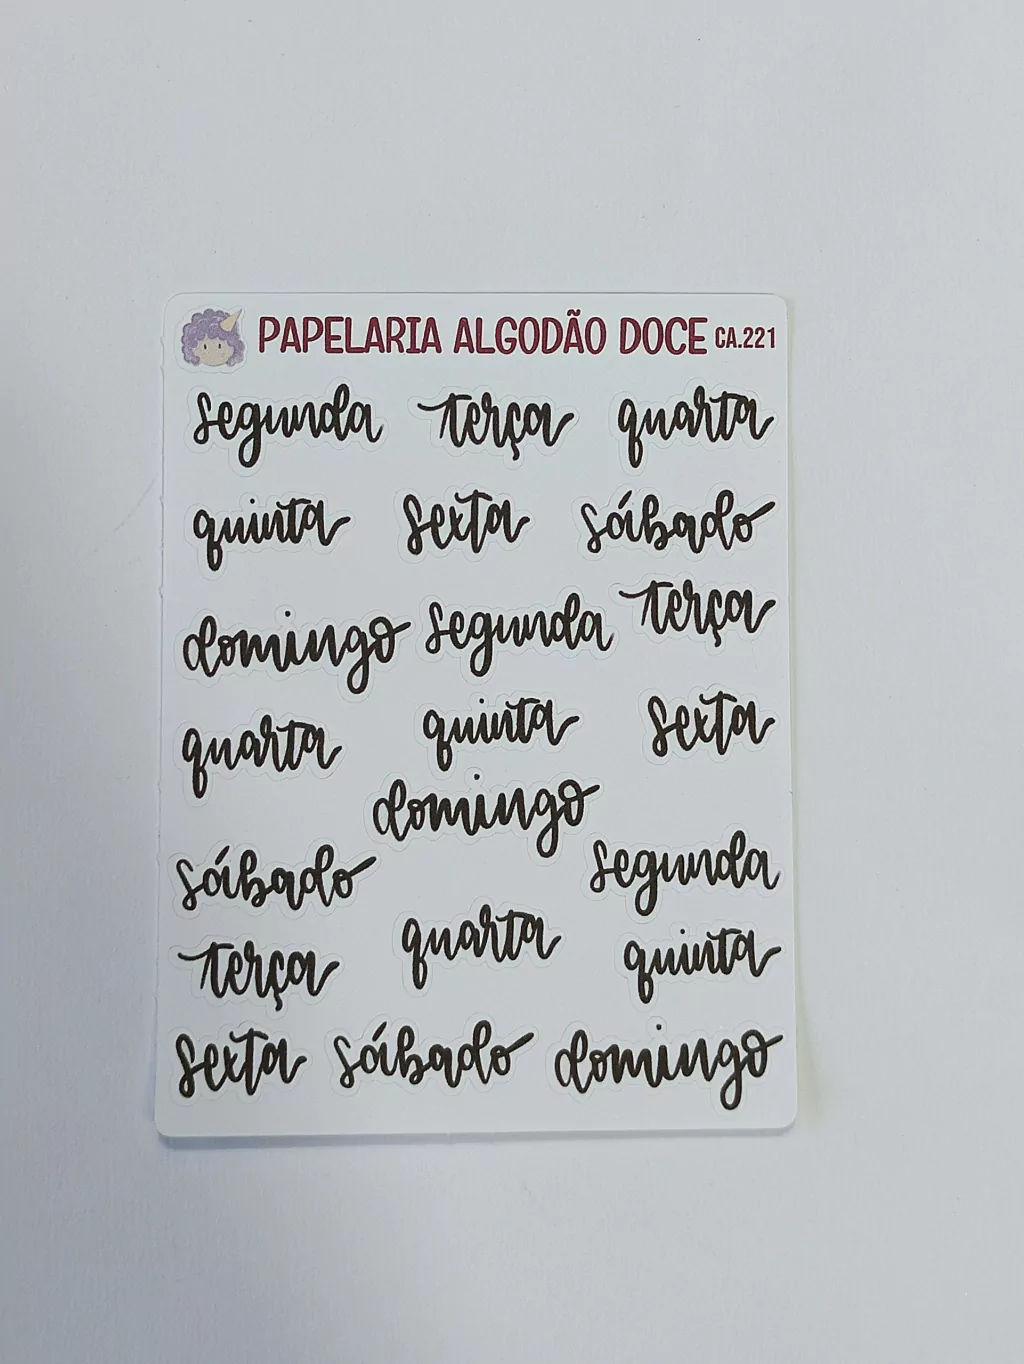 PAPELARIA ALGODÃO DOCE CA.221
segunda terça quarta
quinta sexta sábado
domingo segunda terça
quarta quinta sexta
domingo
sábado segunda
terça quarta quinta
sexta sábado domingo